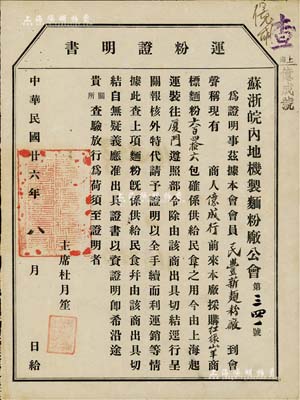 運粉證明書
查
上海億成號
蘇浙皖內地機製麵粉廠公會 第三四一號
為證明事茲據本會會員民豐新麵粉廠到會
聲稱現有 商人億成行前來本廠採購紅綠山羊商
標麵粉 包確係供給民食之用今由上海起
運裝往厦门遵照部令除由該商出具切結逕行呈
關報核外特代請予證明以全手續而利運銷等情
據此查上項麵粉既係供給民食并由該商出具切
結自無疑義應准出具證書以資證明即希沿途
關所
貴 查驗放行為荷須至證明者
主席杜月笙
中華民國廿六年八月 日給